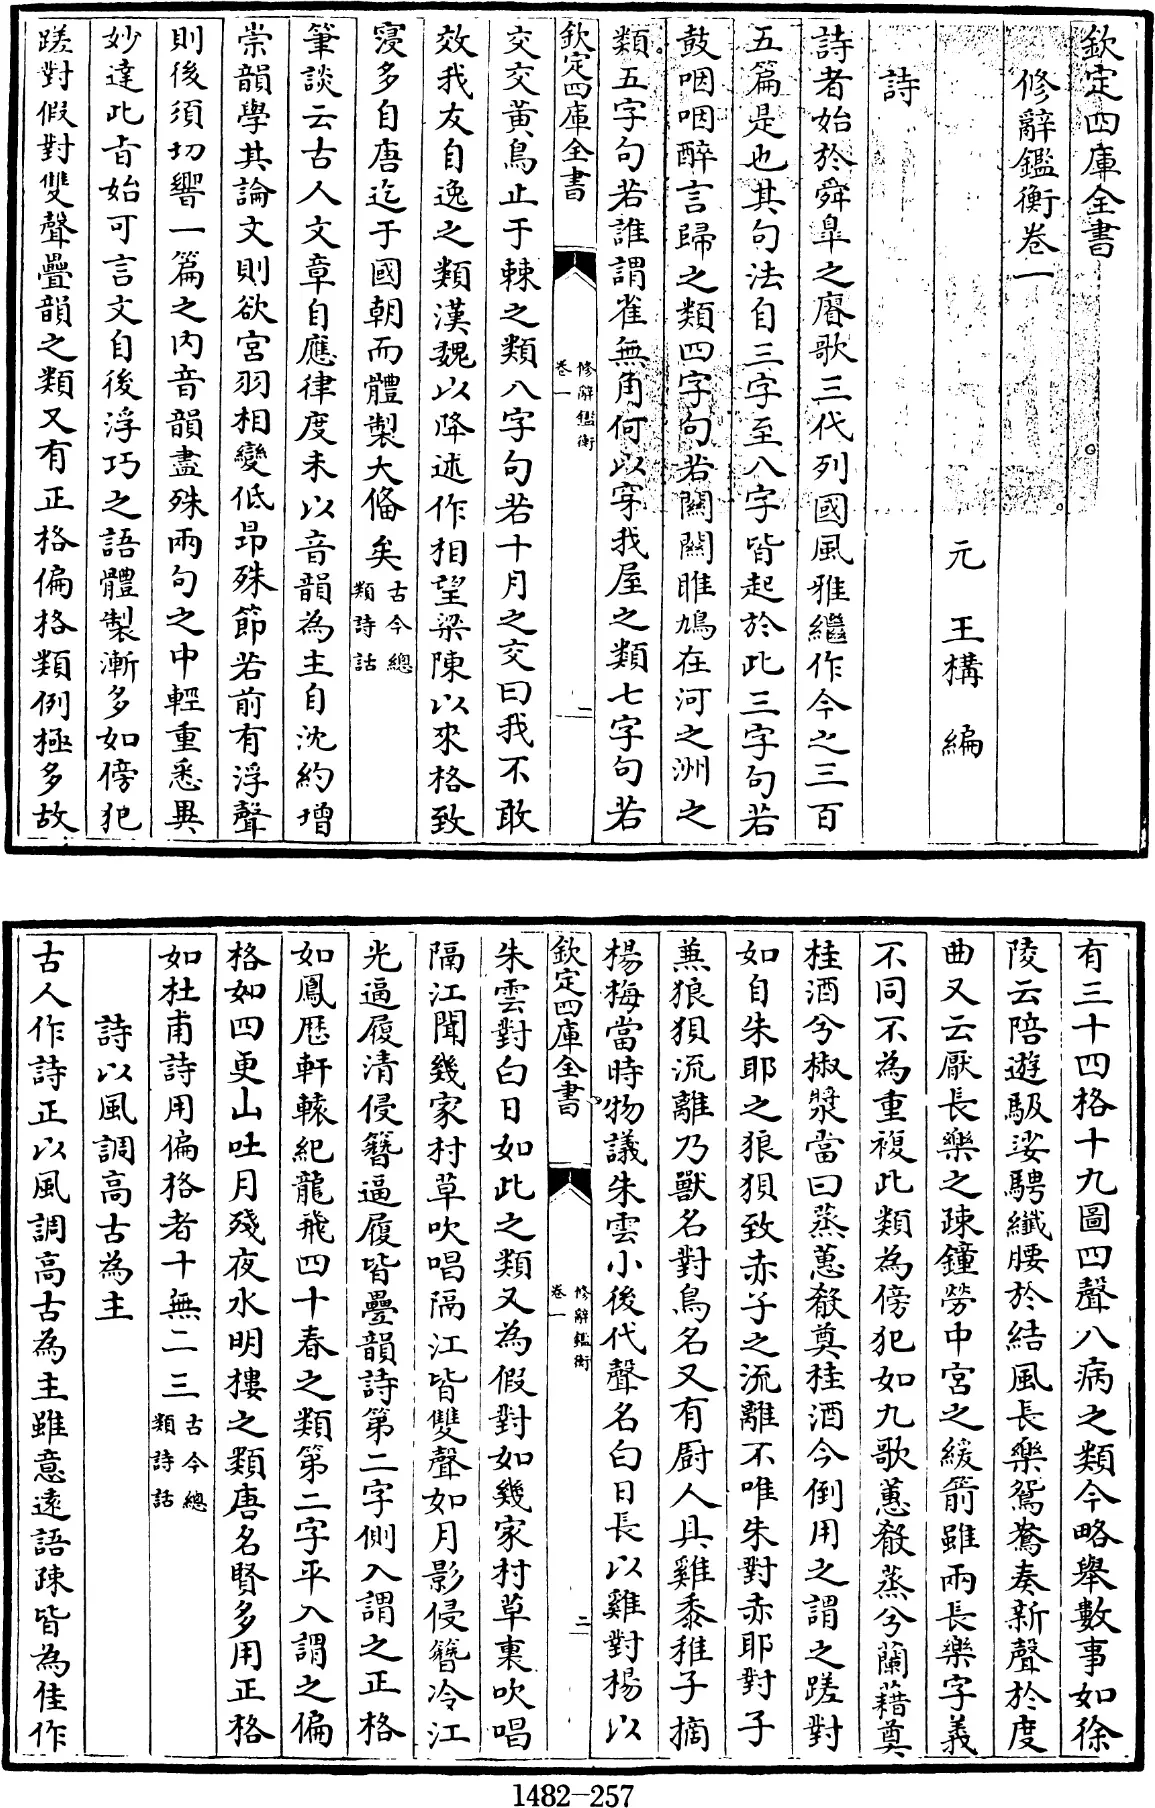 欽定四庫全書
修辭鑑衡卷一
元 王構 編
詩
詩者始於舜臯之賡歌三代列國風雅繼作今之三百
五篇是也其句法自三字至八字皆起於此三字句若
鼓咽咽醉言歸之類四字句若關關雎鳩在河之洲之
類五字句若誰謂雀無角何以穿我屋之類七字句若
欽定四庫全書
修辭鑑衡
卷一
一
交交黃鳥止于棘之類八字句若十月之交曰我不敢
效我友自逸之類漢魏以降述作相望梁陳以來格致
寖多自唐迄于國朝而體製大備矣古今總類詩話
筆談云古人文章自應律度未以音韻為主自沈約增
崇韻學其論文則欲宮羽相變低昂殊節若前有浮聲
則後須切響一篇之內音韻盡殊兩句之中輕重悉異
妙達此㫖始可言文自後浮巧之語體製漸多如傍犯
蹉對假對雙聲疊韻之類又有正格偏格類例極多故
有三十四格十九圖四聲八病之類今略舉數事如徐
陵云陪遊馺娑騁纖腰於結風長樂鴛鴦奏新聲於度
曲又云厭長樂之疎鐘勞中宮之緩箭雖兩長樂字義
不同不為重複此類為傍犯如九歌蕙殽蒸兮蘭藉奠
桂酒兮椒漿當曰蒸蕙殽奠桂酒今倒用之謂之蹉對
如自朱耶之狼狽致赤子之流離不唯朱對赤耶對子
兼狼狽流離乃獸名對鳥名又有厨人具雞黍稚子摘
楊梅當時物議朱雲小後代聲名白日長以雞對楊以
欽定四庫全書
修辭鑑衡
卷一
二
朱雲對白日如此之類又為假對如幾家村草裏吹唱
隔江聞幾家村草吹唱隔江皆雙聲如月影侵簪冷江
光逼履清侵簪逼履皆疊韻詩第二字側入謂之正格
如鳳歷軒轅紀龍飛四十春之類第二字平入謂之偏
格如四更山吐月殘夜水明樓之類唐名賢多用正格
如杜甫詩用偏格者十無二三古今總類詩話
詩以風調高古為主
古人作詩正以風調高古為主雖意遠語疎皆為佳作
1482-257